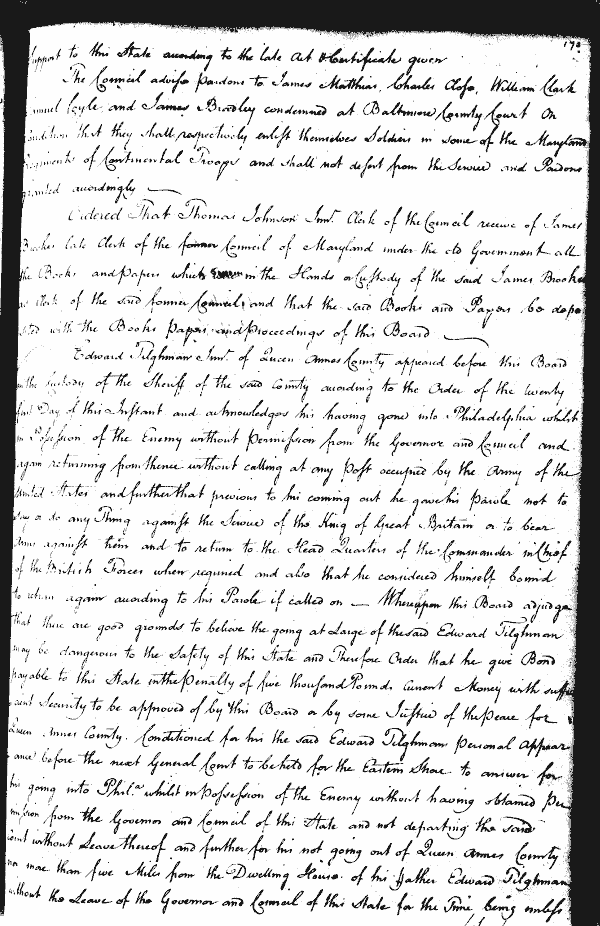 178
support to this State according to the late Act & Certificate given
The Council advise Pardons to James Matthias, Charles Close, William Clark
Samuel Coyle, and James Bradley condemned at Baltimore County Court On
Condition that they shall respectively enlist themselves Soldiers in some of the Maryland
Regiments of Continental Troops and shall not desert from the Service and Pardons
granted accordingly
Ordered That Thomas Johnson Junr. Clerk of the Council receive of James
Brooks late Clerk of the former Council of Maryland under the old Government all
the Books and Papers which in the Hands or Custody of the said James Brooks
as Clerk of the said former Council; and that the said Books and Papers be depo
sited with the Books Papers and Proceedings of this Board
Edward Tilghman Junr. of Queen Annes County appeared before this Board
in the Custody of the Sheriff of the said County according to the Order of the twenty
first Day of this Instant and acknowledges his having gone into Philadelphia whilst
in Possession of the Enemy without Permission from the Governor and Council and
again returning from thence without calling at any Post occupied by the Army of the
United States and further that previous to his coming out he gave his Parole not to
say or do any Thing against the Service of the King of Great Britain or to bear
Arms against them and to return to the Head Quarters of the Commander in Chief
of the British Forces when required and also that he considered himself bound
to return again according to his Parole if called on — Whereupon this Board adjudge
that there are good grounds to believe the going at Large of the said Edward Tilghman
may be dangerous to the Safety of this State and Therefore Order that he give Bond
payable to this State in the Penalty of five thousand Pounds Current Money with suffi
cient Security to be approved of by this Board or by some Justice of the Peace for
Queen Annes County. Conditioned for his the said Edward Tilghman personal Appear
ance before the next General Court to be held for the Eastern Shore to answer for
his going into Phila. whilst in Possession of the Enemy without having obtained Per
mission from the Governor and Council of this State and not departing the said
Court without Leave thereof and further for his not going out of Queen Annes County
nor more than five Miles from the Dwelling House of his father Edward Tilghman
without the Leave of the Governor and Council of this State for the Time being unless